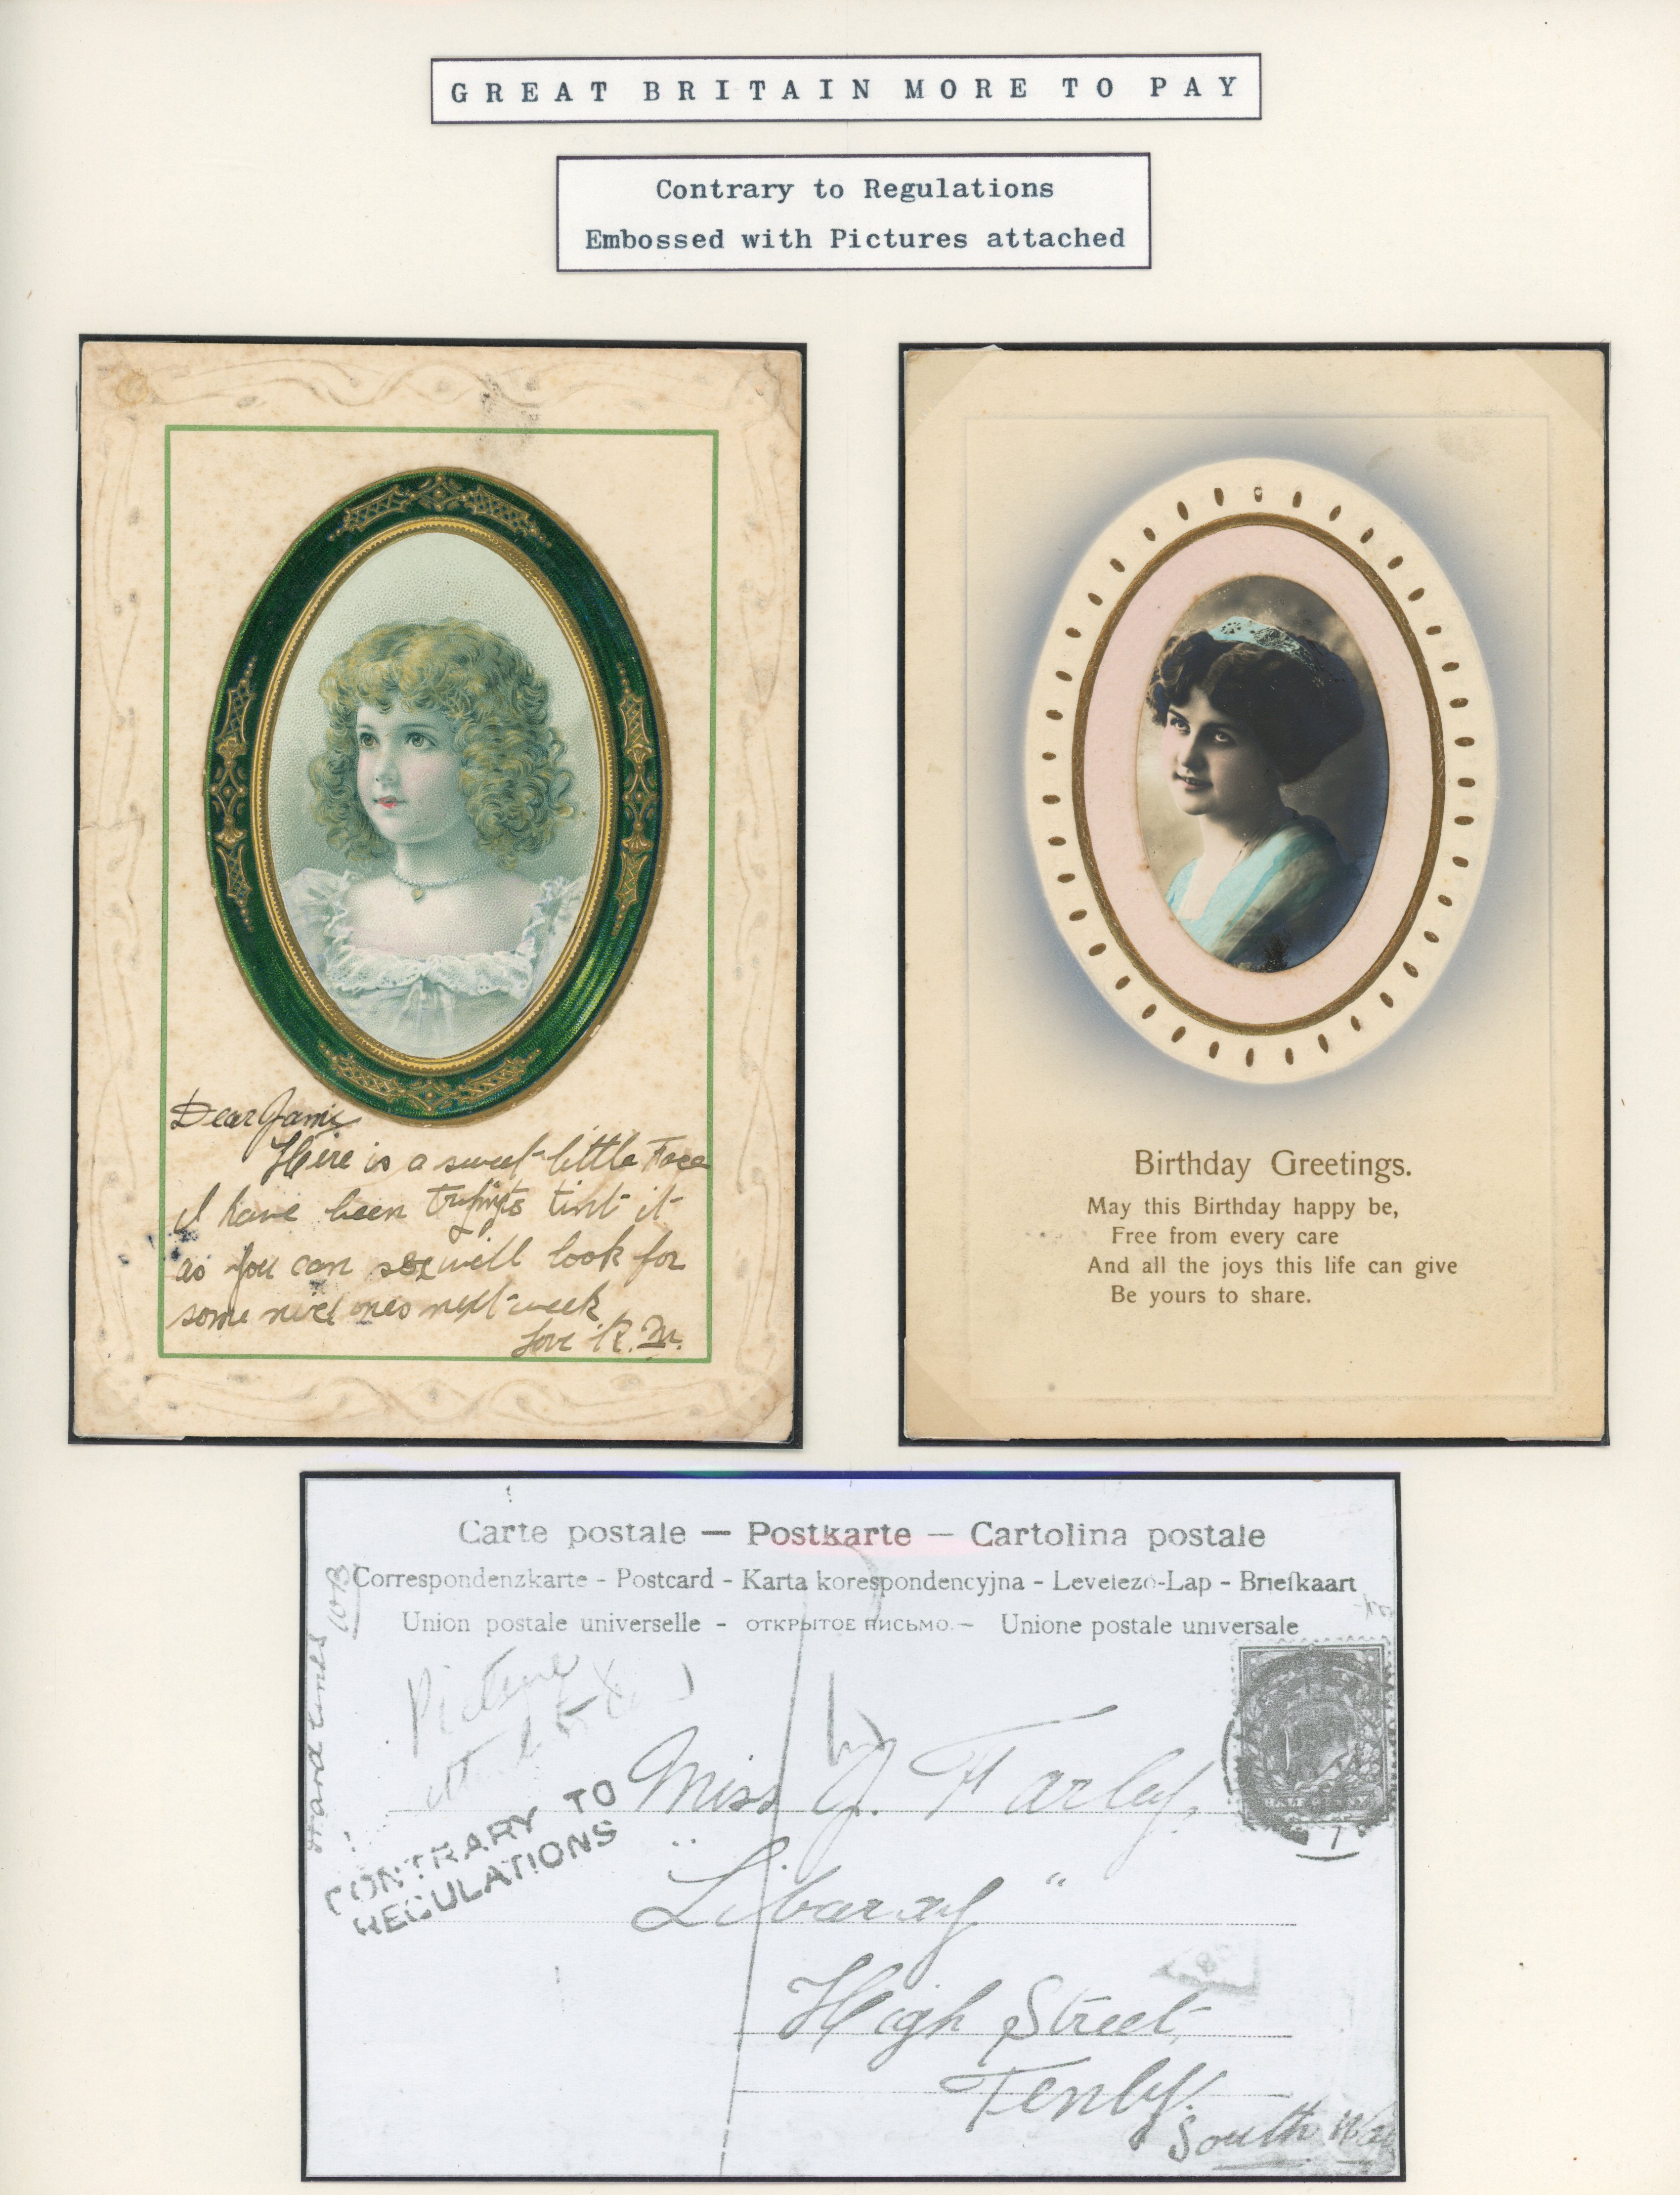 GREAT BRITAIN MORE TO PAY
Contrary to Regulations
Embossed with Pictures attached
Dear Jamie
Here is a sweet little Face
I have been trying to tint it
as you can see will look for
some nice ones next week
Love R. M.
Birthday Greetings.
May this Birthday happy be,
Free from every care
And all the joys this life can give
Be yours to share.
Carte postale — Postkarte — Cartolina postale
Correspondenzkarte - Postcard - Karta korespondencyjna - Levelező-Lap - Briefkaart
Union postale universelle - ОТКРЫТОЕ ПИСЬМО. - Unione postale universale
Picture
CONTRARY TO
REGULATIONS
Miss J. Farley.
Libaray "
High Street,
Tenby.
South
HALFPENNY